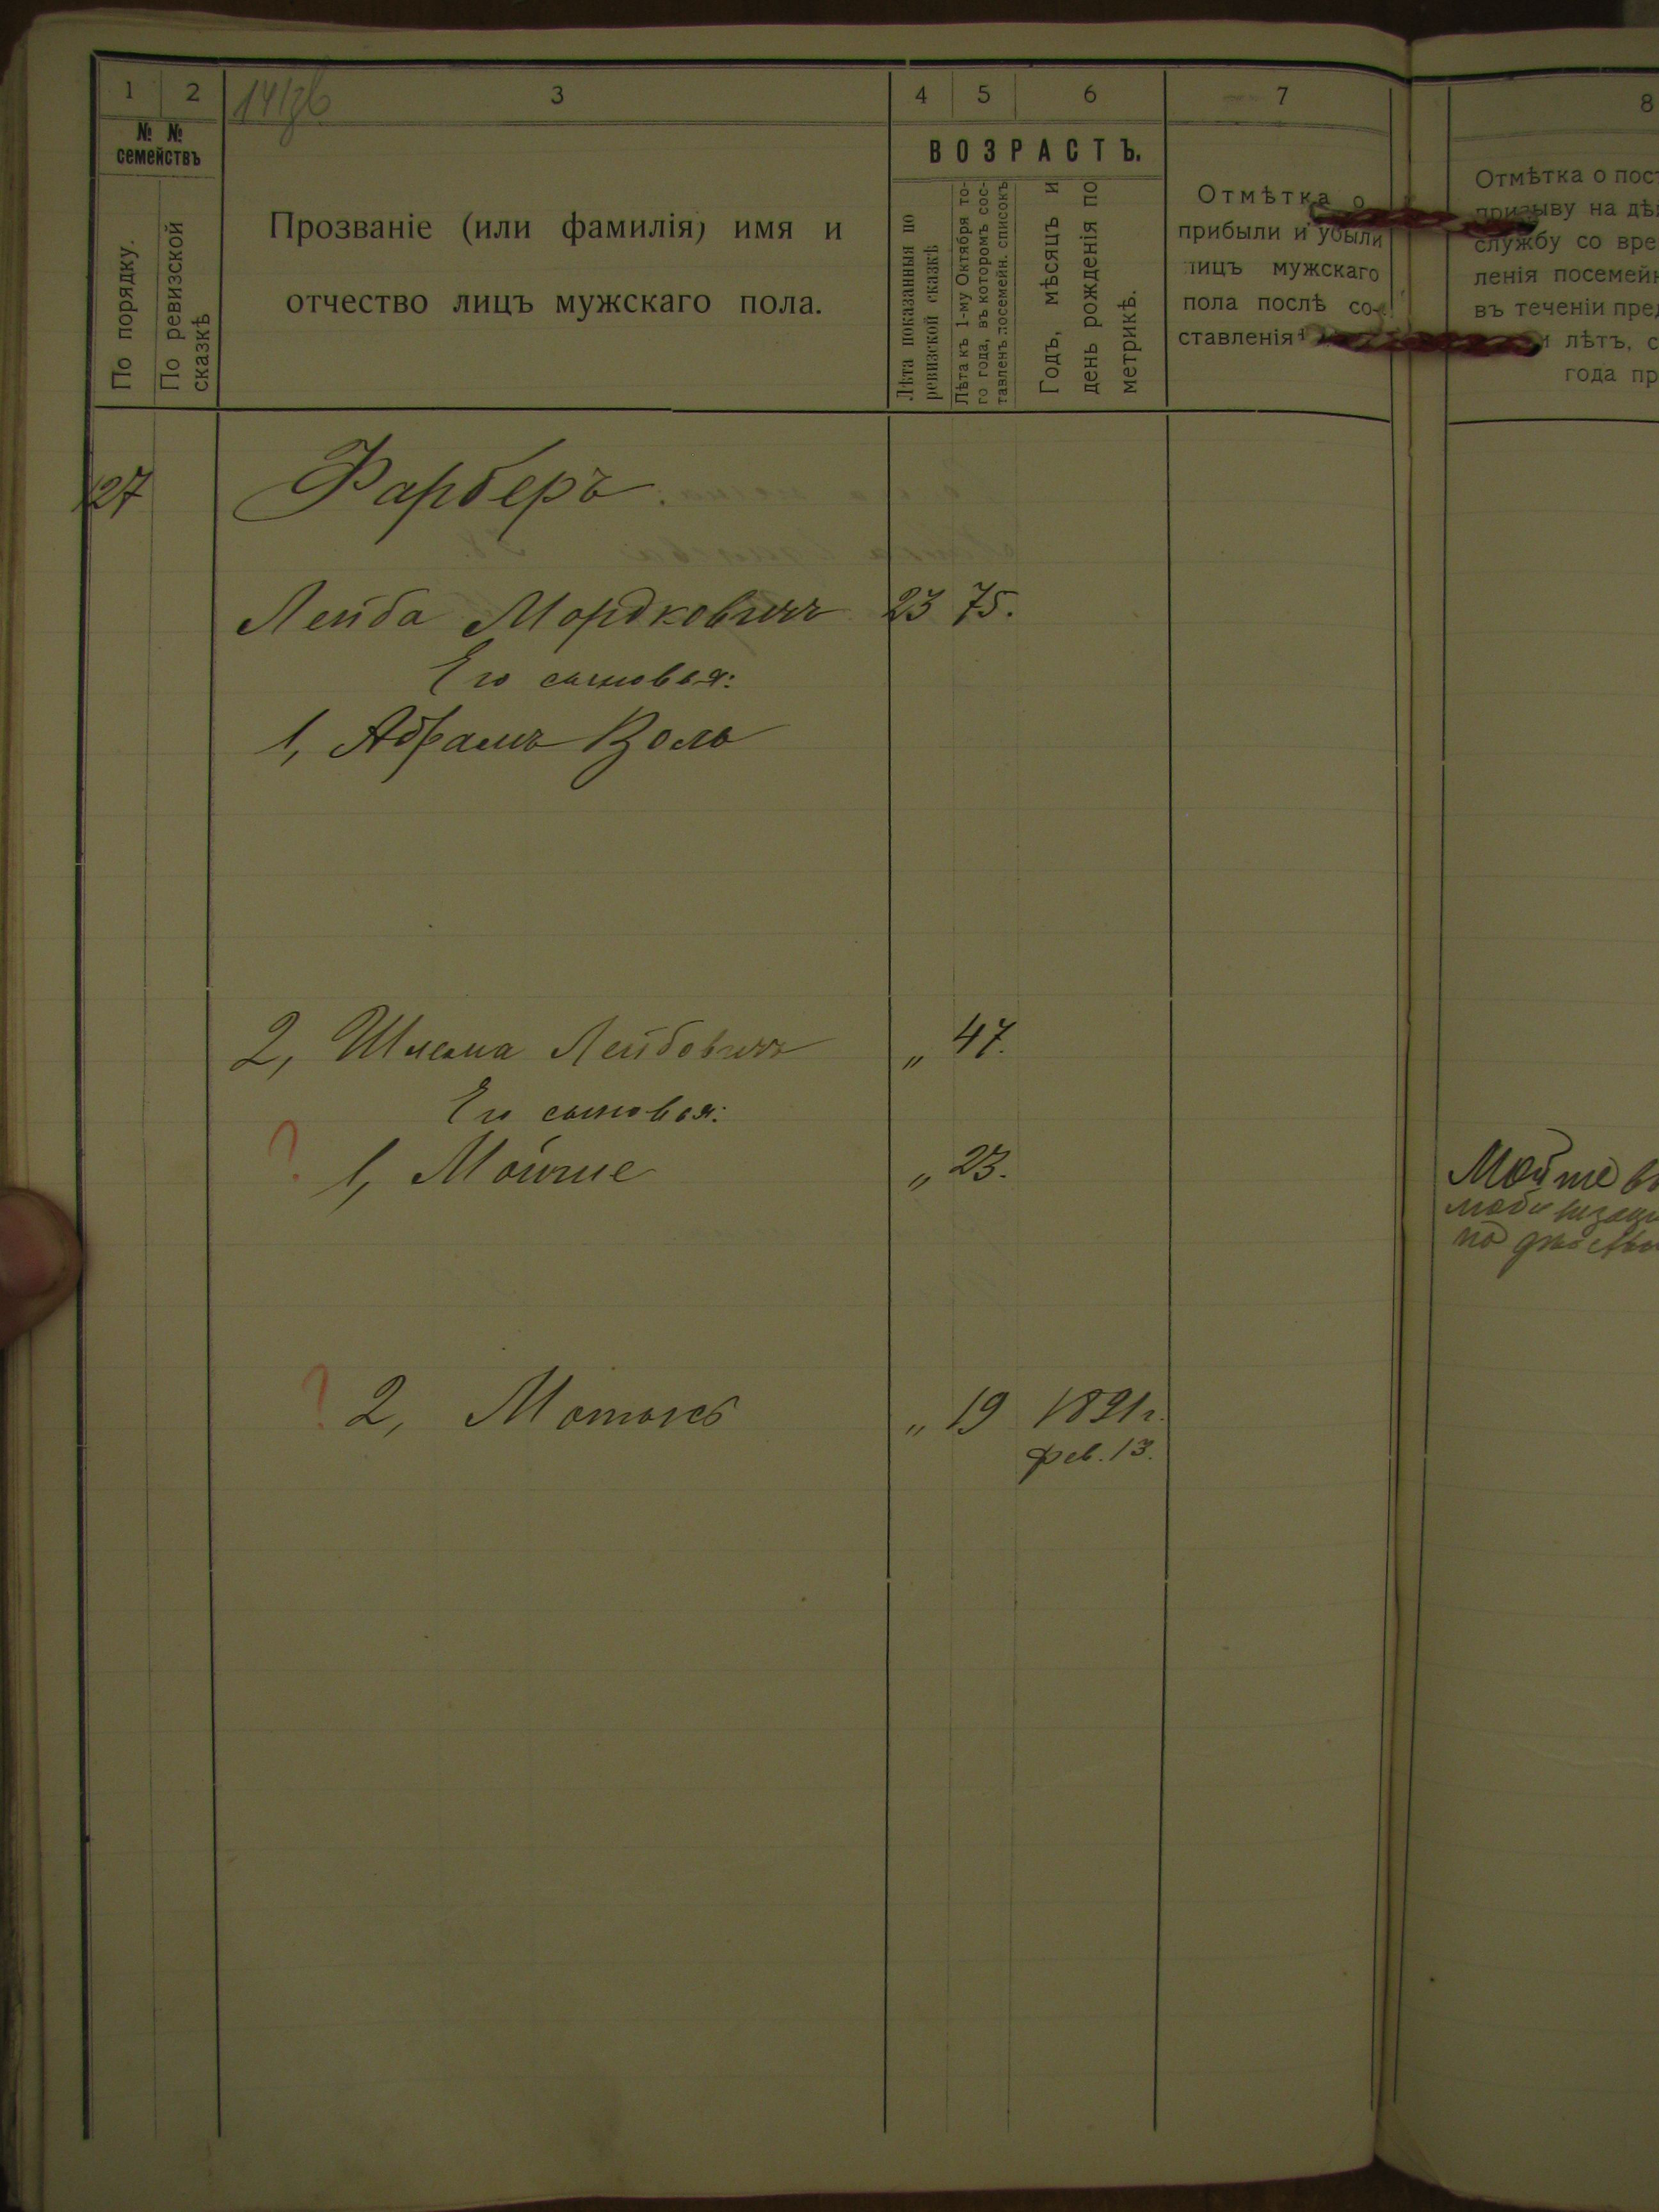 1 2 3 4 5 6 7
№ № семействъ
По порядку.
По ревизской сказкѣ
Прозваніе (или фамилія) имя и
отчество лицъ мужскаго пола.
ВОЗРАСТЪ.
Лѣта показанныя по ревизской сказкѣ
Лѣта къ 1-му Октября того года, въ которомъ составленъ посемейн. списокъ
Годъ, мѣсяцъ и день рожденія по метрикѣ.
Отмѣтка о
прибыли и убыли
лицъ мужскаго
пола послѣ со-
ставленія
8
Отмѣтка о пос
призыву на дѣ
службу со вре
ленія посемей
въ теченіи пре
лѣтъ, с
года пр
127 Фарберъ
Лейба Мордковичъ 23 75.
Его сыновья:
1, АбрамъВоль
2, Шлема Лейбовичъ „ 47.
Его сыновья:
? 1, Мойше „ 23.
Мойше
? 2, Мотель „ 19 1891 г.
фев. 13.